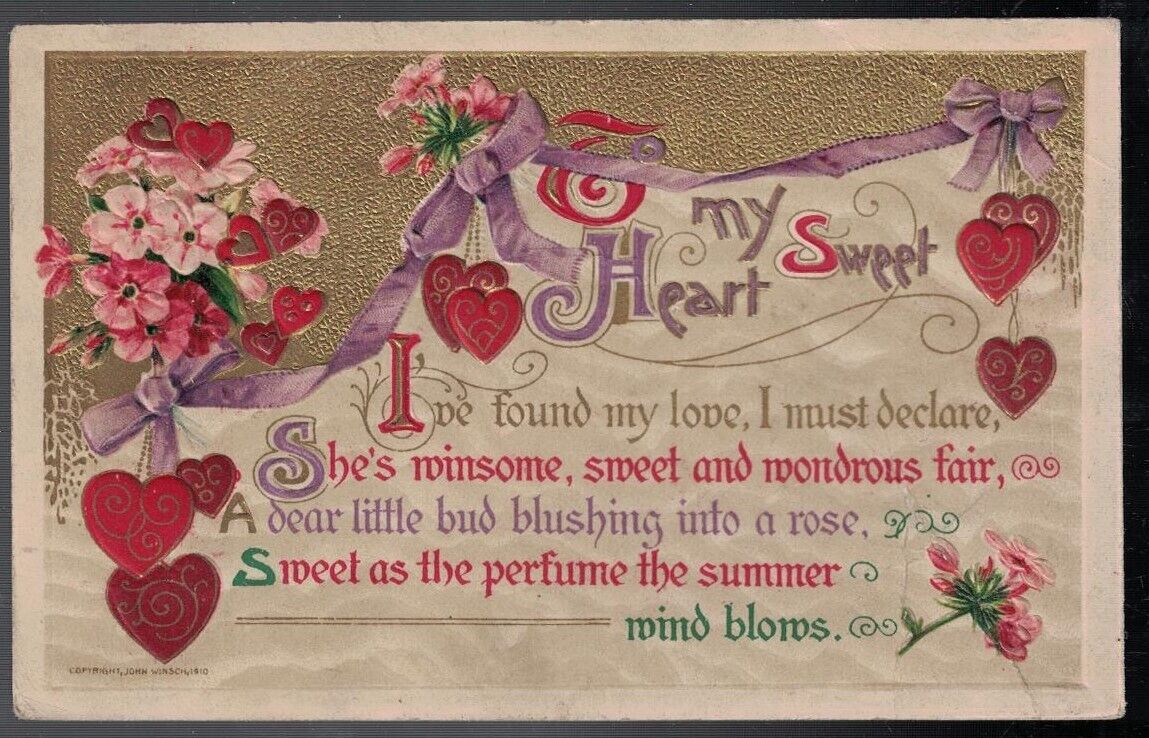 To my Sweet
Heart
I've found my love, I must declare,
She's winsome, sweet and wondrous fair,
A dear little bud blushing into a rose,
Sweet as the perfume the summer
wind blows.
COPYRIGHT, JOHN WINSCH, 1910